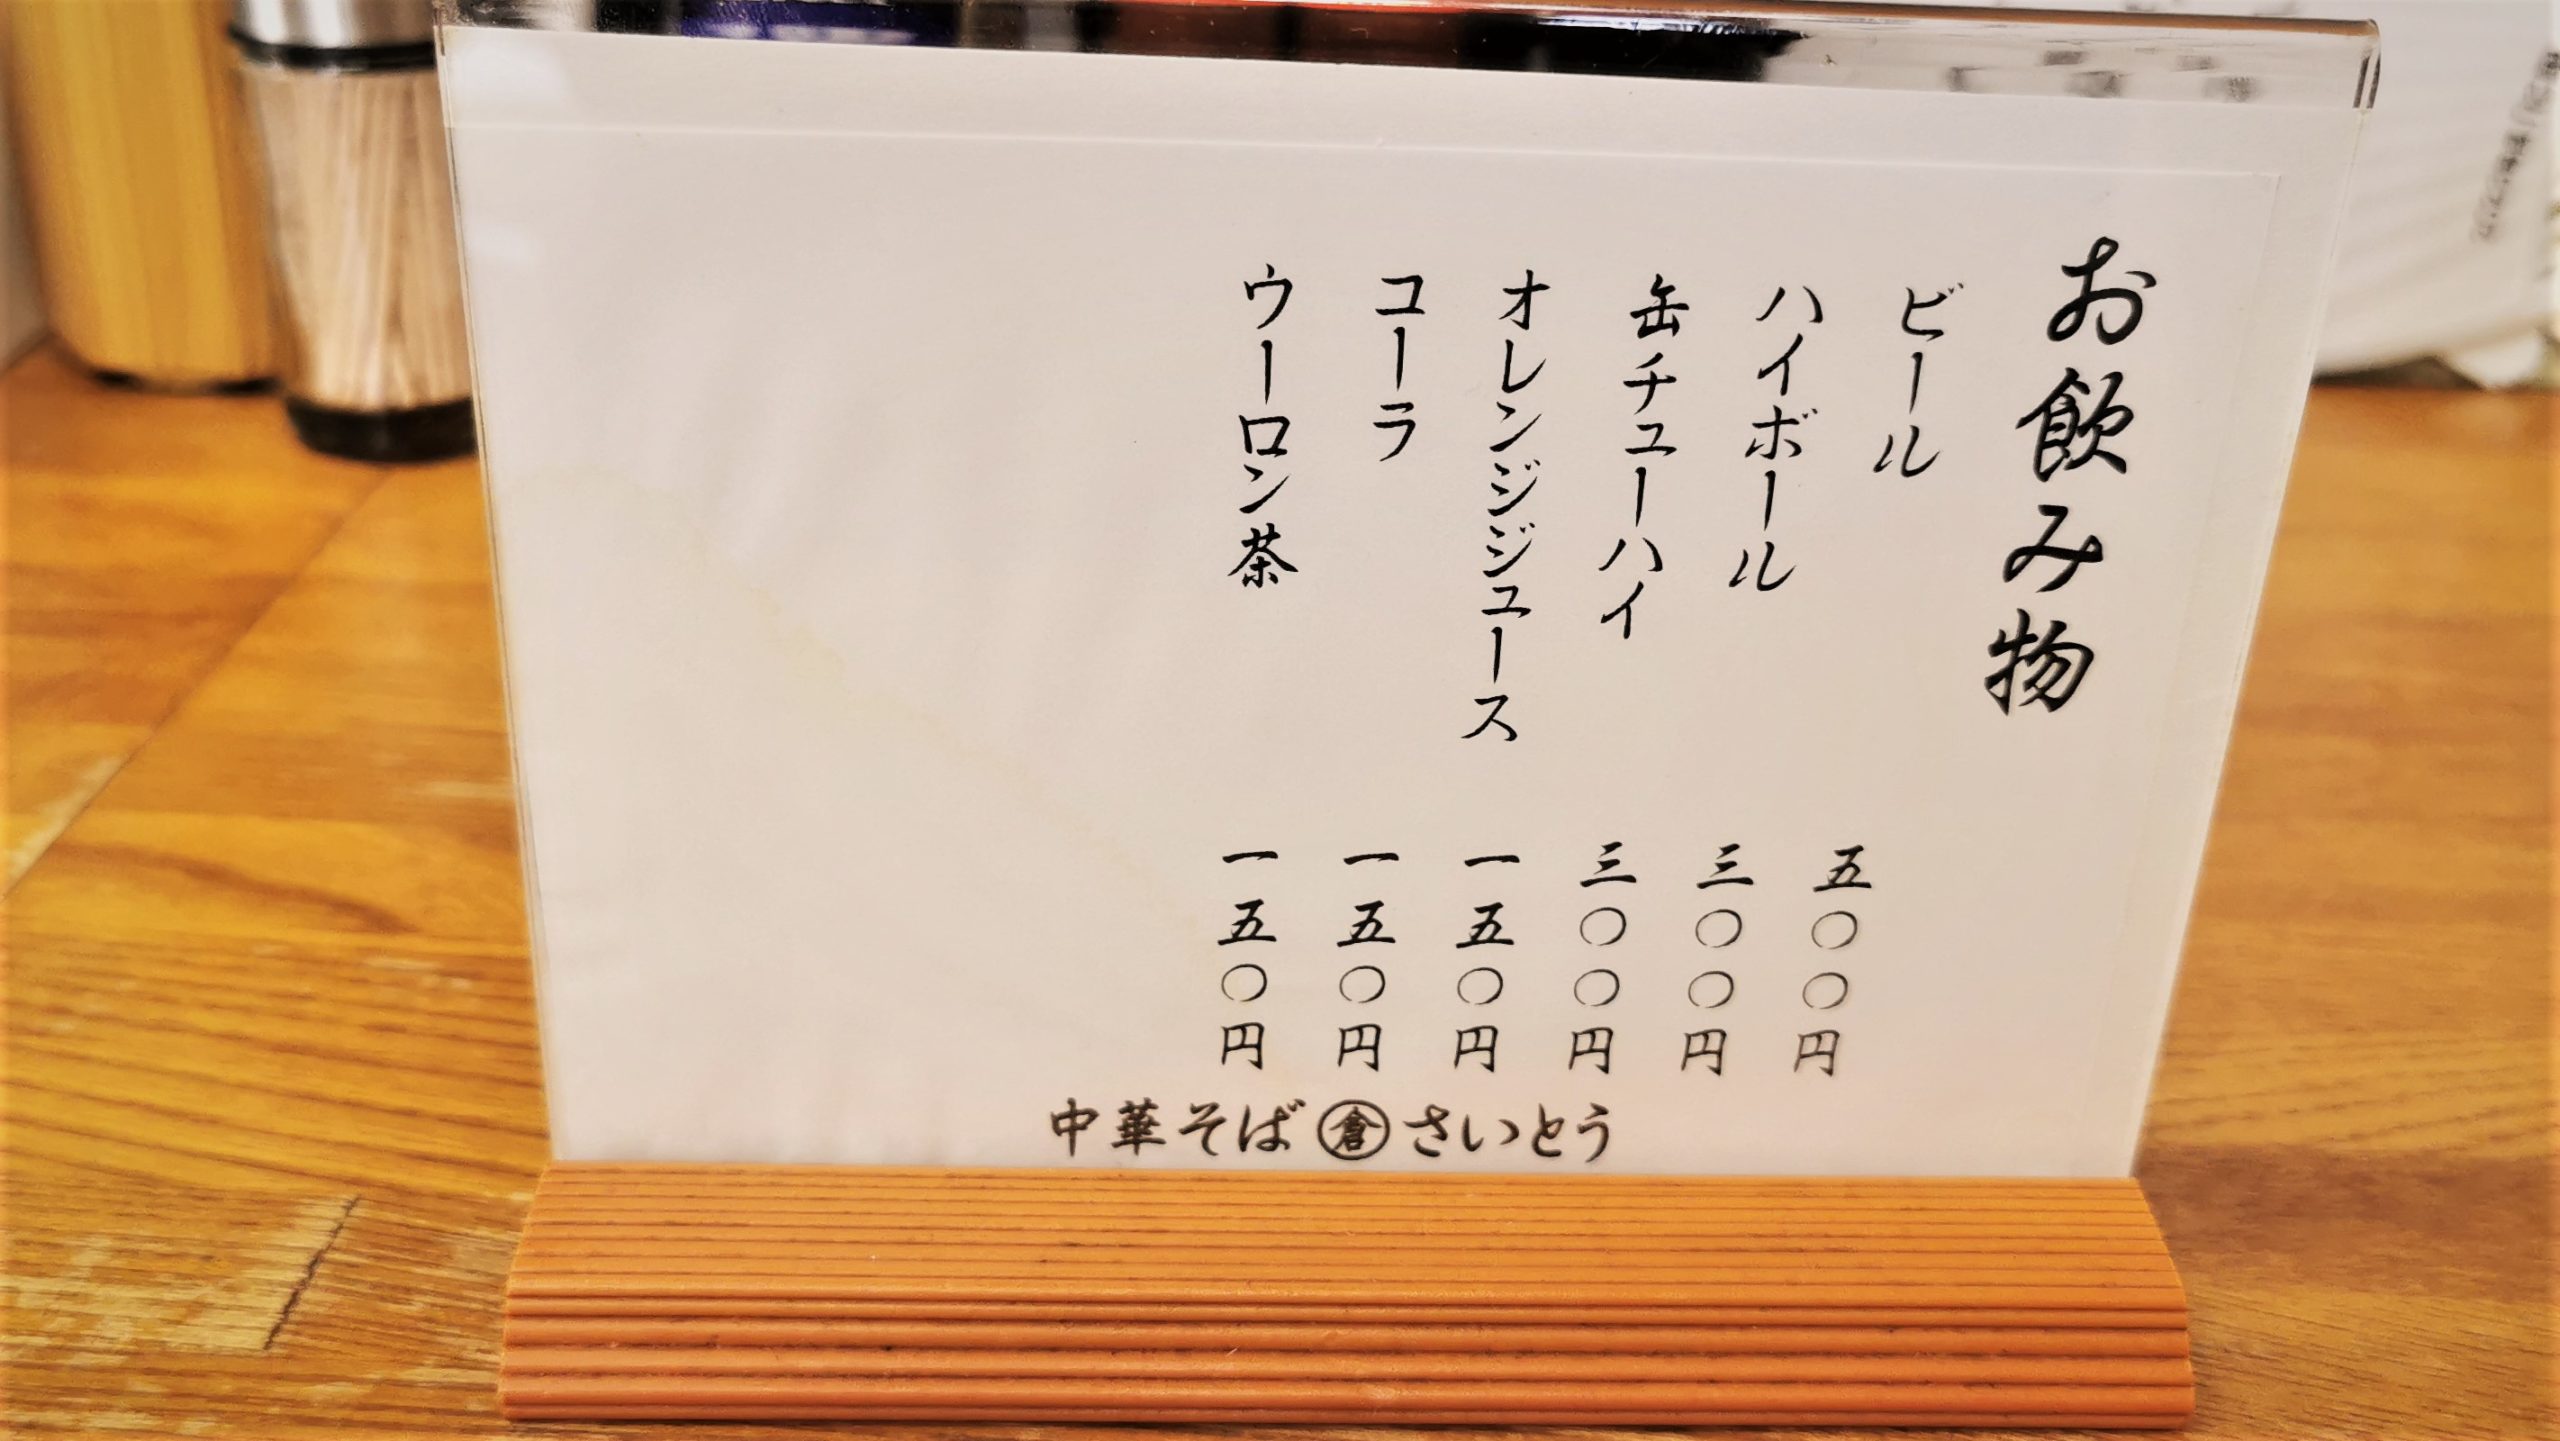 お飲み物
ビール 五〇〇円
ハイボール 三〇〇円
缶チューハイ 三〇〇円
オレンジジュース 一五〇円
コーラ 一五〇円
ウーロン茶 一五〇円
中華そば㊎さいとう